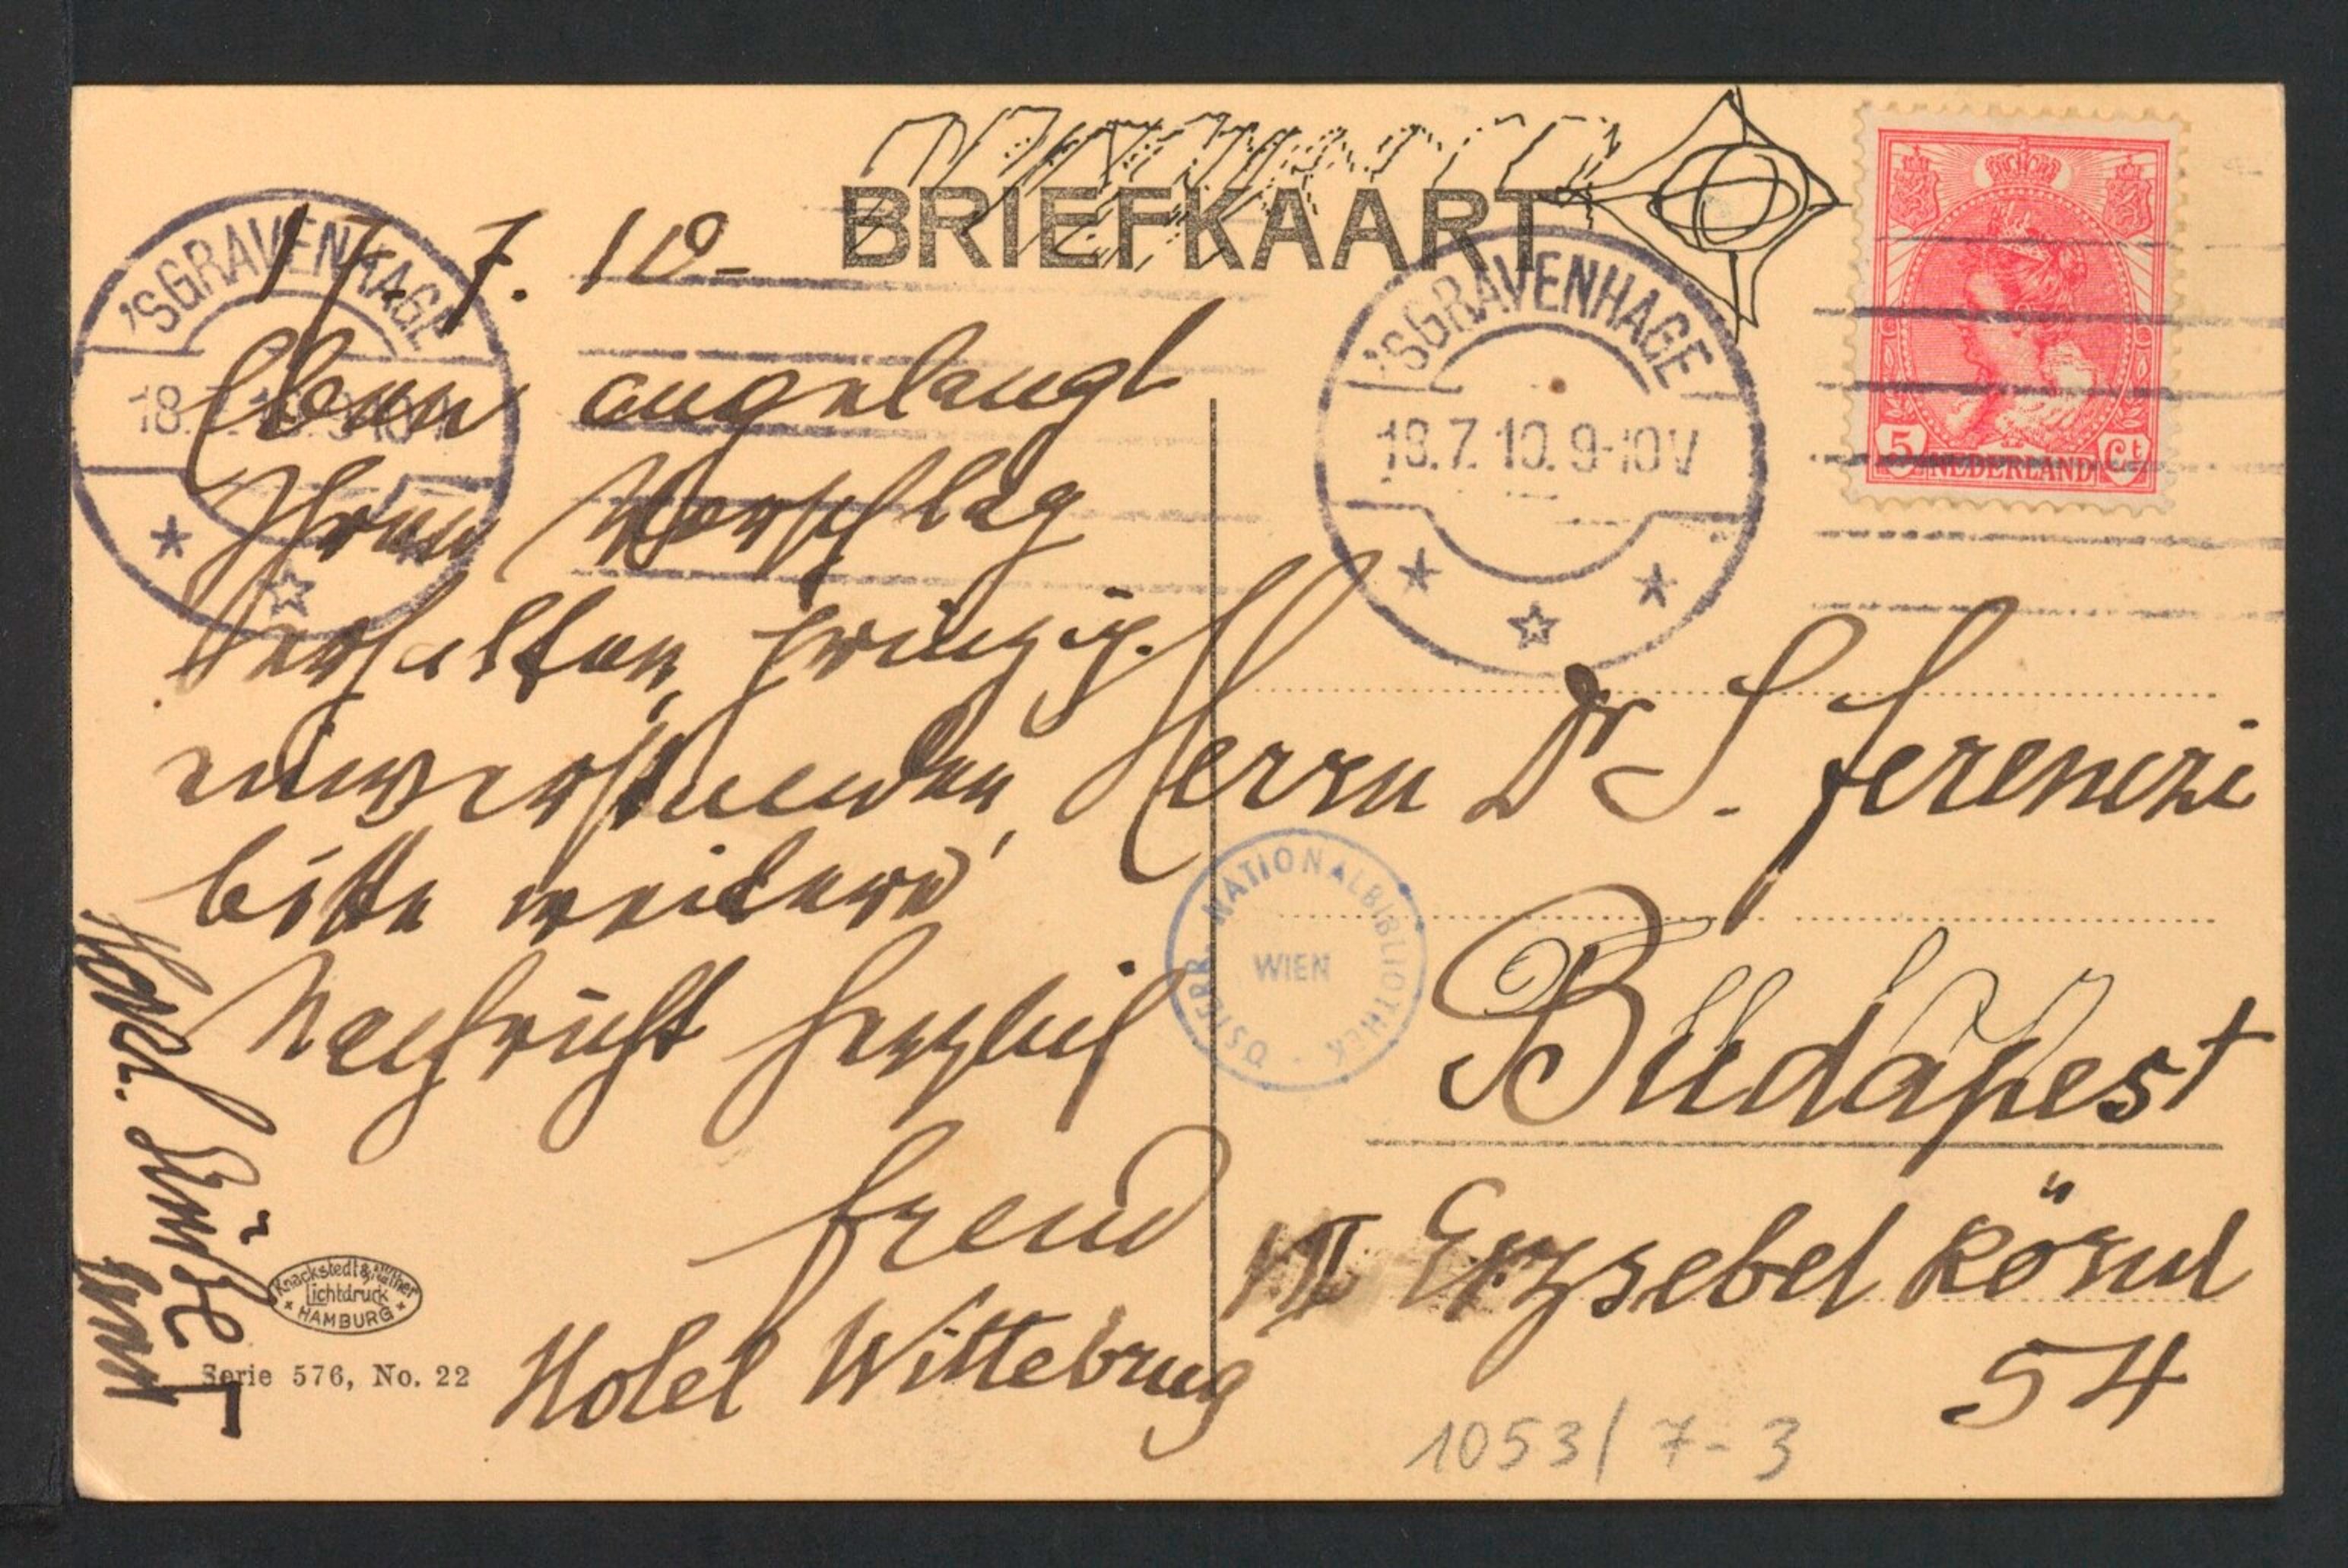 BRIEFKAART
'SGRAVENHAGE
18.7.10. 9-10V
'SGRAVENHAGE
18.7.10. 9-10V
5 NEDERLAND Ct
17. 7. 10 –
Eben angelangt
Ihren Vorschlag
erhalten, prinzip.
einverstanden,
bitte weitere
Nachricht herzlich
Freud
Hotel Wittebrug
Herrn Dr S. Ferenczi
Budapest
VII Erzsebet körut
54
ÖSTERR. NATIONALBIBLIOTHEK
WIEN
Knackstedt & Näther
Lichtdruck
HAMBURG
Serie 576, No. 22
1053/7-3